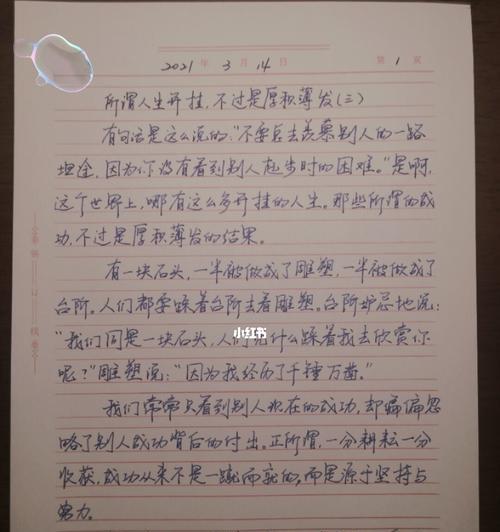 2021年3月14日 第1页
所谓人生开挂，不过是厚积薄发(三)
有句话是这么说的："不要总去羡慕别人的一路
坦途，因为你没有看到别人起步时的困难。"是啊，
这个世界上，哪有这么多开挂的人生。那些所谓的成
功，不过是厚积薄发的结果。
有一块石头，一半被做成了雕塑，一半被做成了
台阶。人们都要踩着台阶去看雕塑。台阶妒忌地说：
"我们同是一块石头，人们凭什么踩着我去欣赏你
呢？"雕塑说："因为我经历了千锤万凿。"
小红书
我们常常只看到别人现在的成功，却偏偏忽
略了别人成功背后的付出。正所谓，一分耕耘一分
收获，成功从来不是一蹴而就的，而是源于坚持与
努力。